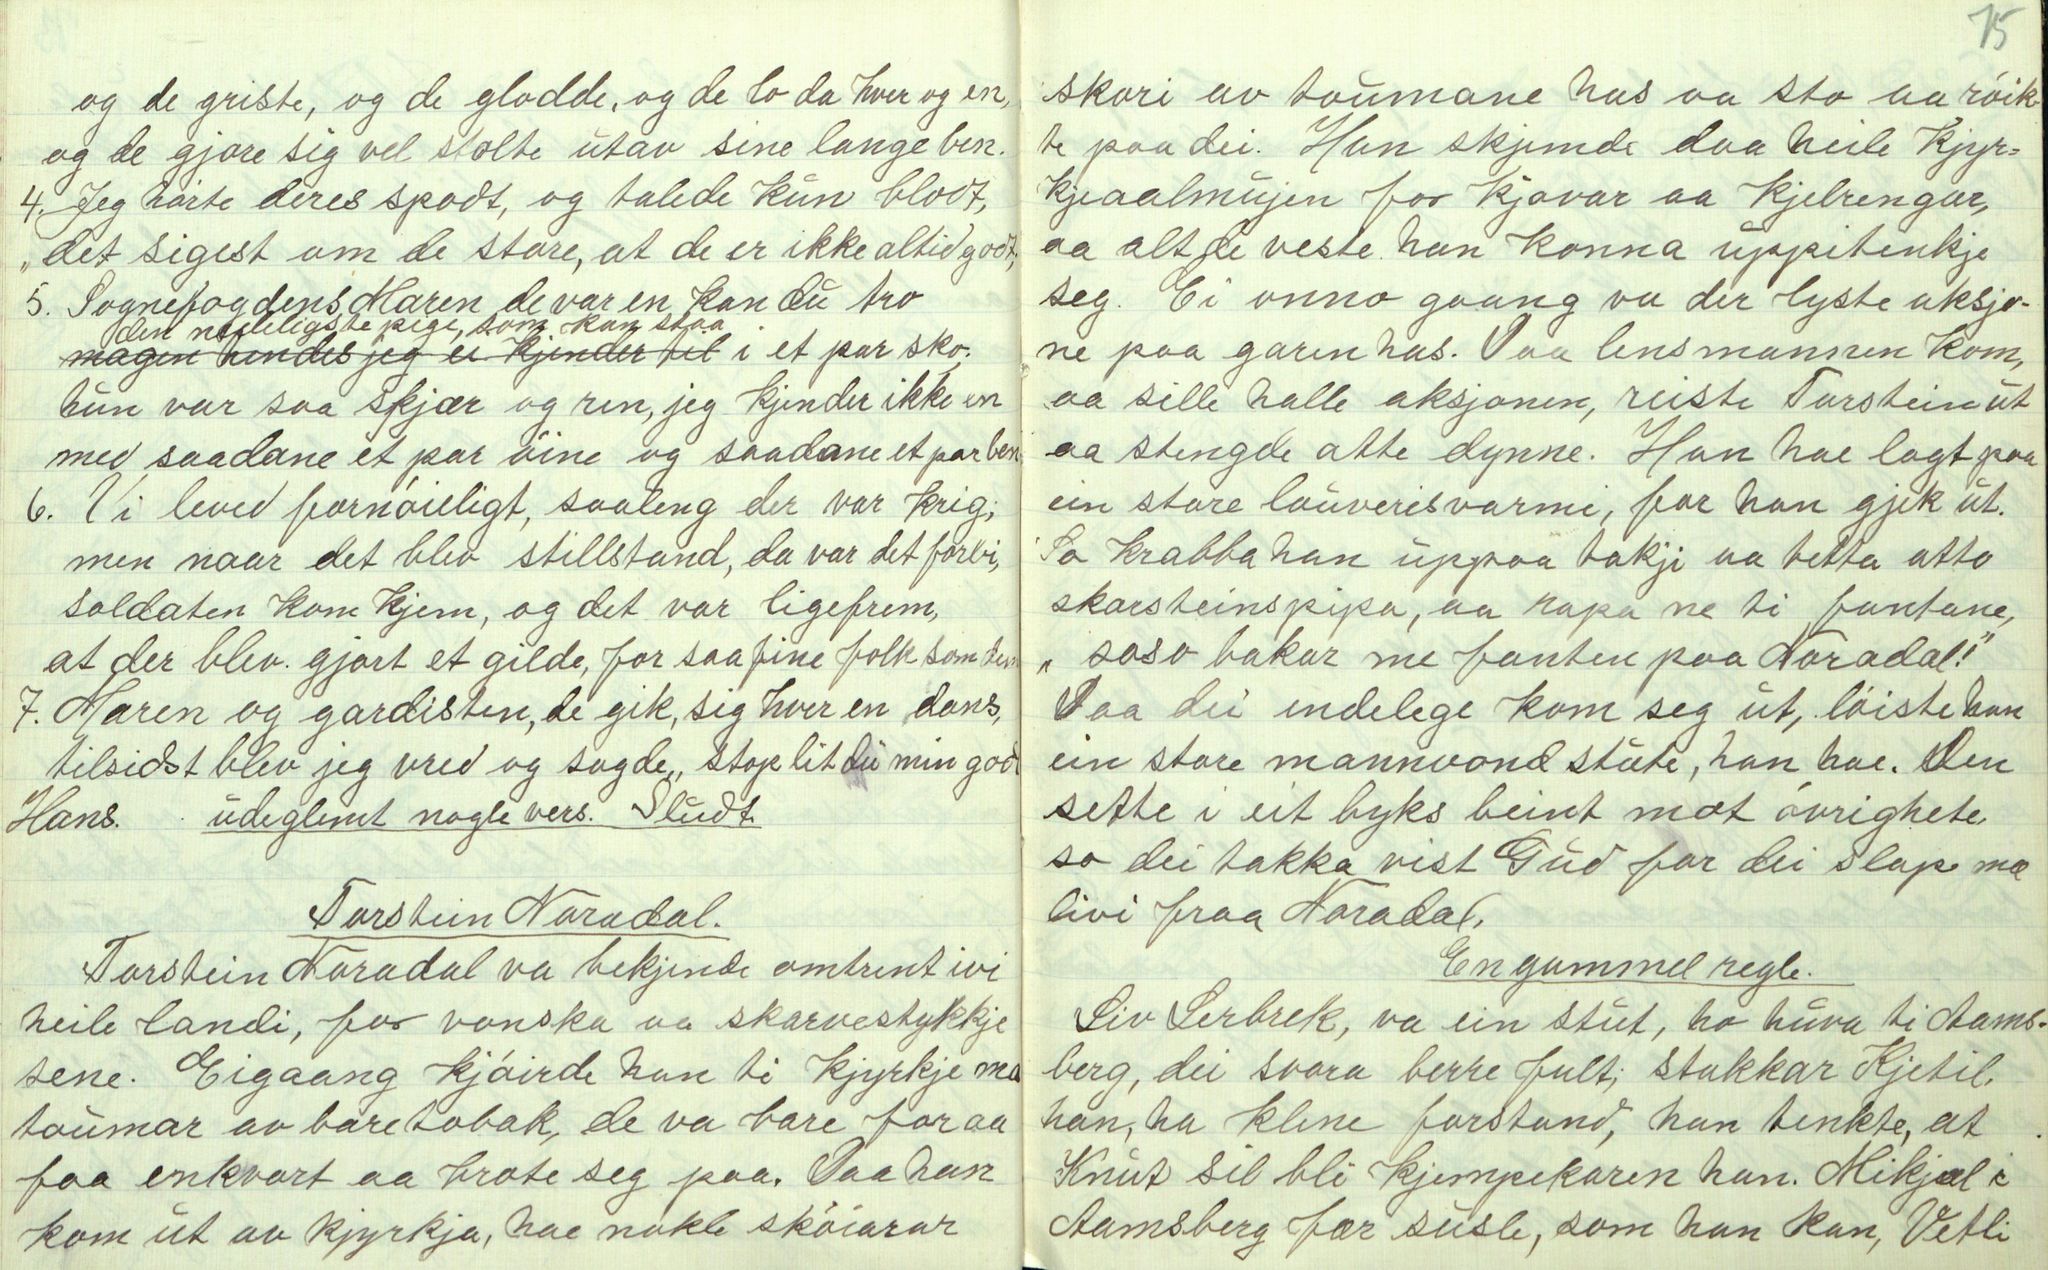 og de griste, og de glodde, og de lo da hver og en,
og de gjore sig vel stolte utav sine lange ben.
4. Jeg hørte deres spodt, og talede kun blodt,
„det sigest om de store, at de er ikke altid godt;
5. Sognefogdens Maren de var en kan du tro
den nydeligste pige, som kan staa
magen hendes jeg ei kjender til i et par sko.
hun var saa skjær og ren, jeg kjender ikke en
med saadane et par øine og saadane et par ben
6. Vi leved fornøieligt, saaleng der var krig;
men naar det blev stillstand, da var det forbi,
soldaten kom hjem, og det var ligefrem,
at der blev. gjort et gilde, for saa fine folk som dem
7. Maren og gardisten, de gik, sig hver en dans,
tilsidst blev jeg vred og sagde„ stop lit du min god
Hans. udeglemt nogle vers. Sludt.
Torstein Noradal.
Torstein Noradal va bekjende omtrent ivi
heile landi, for vonska aa skarvestykkje
sene. Eigaang kjøirde han ti kjyrkje mæ
toumar av bare tobak, de va bare for aa
faa enkvart aa brote seg paa. Daa han
kom ut av kjyrkja, hae nokle skøiarar
75
skori av toumane has aa sto aa røik-
te paa dei. Han skjemde daa heile kjyr=
kjeaalmujen for kjøvar aa kjelrengar,
aa alt de veste han konna uppitenkje
seg. Ei onno gaang va der lyste aksjo-
ne paa garen has. Daa lensmannen kom,
aa sille halle aksjonen, reiste Torstein ut
aa stengde atte dynne. Han hae lagt paa
ein store louverisvarmi, før han gjek ut.
So krabba han uppaa takji aa tetta atto
skorsteinspipa, aa ropa ne ti fantane,
„ soso bakar me fanten paa Noradal!"
Daa dei endelege kom seg ut, løiste han
ein store mannvond stute, han hae. Den
sette i eit byks beint mot øvrighete,
so dei takka vist Gud for dei slap mæ
livi fraa Noradal.
En gammel regle.
Liv Lerbrek, va ein stut, ho huva ti Aams-
berg, dei svara berre fult; stakkar Kjetil.
han, ha klene forstand, han tenkte, at
Knut sil bli kjempekaren han. Mikjæl i
Aamsberg fær susle, som han kan, Vetli